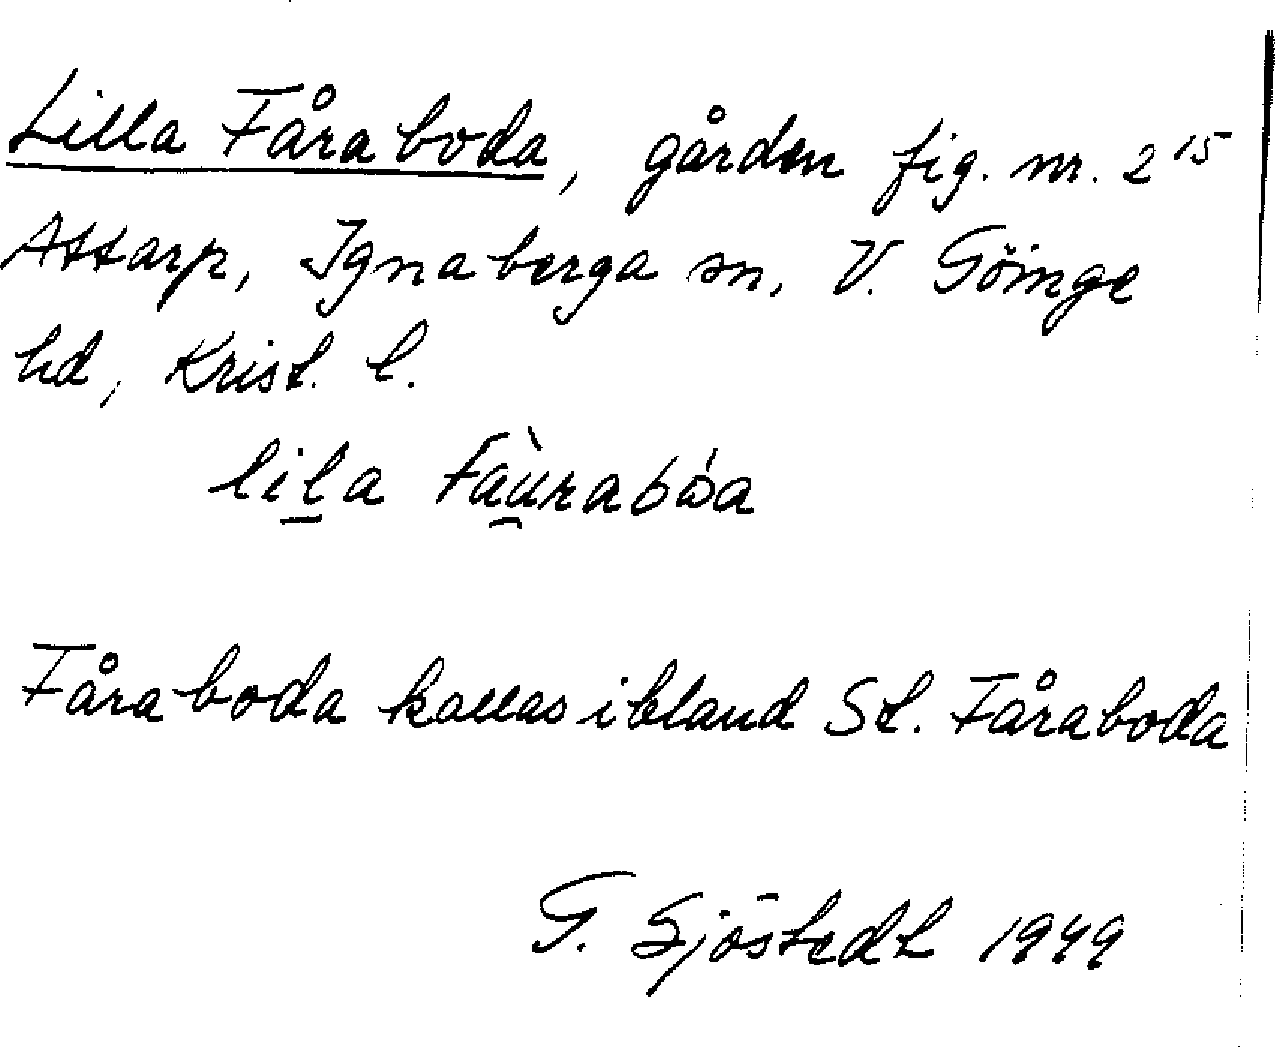 Lilla Fåraboda, gården fig. nr. 2¹⁵
Attarp, Ignaberga sn, V. Göinge
hd, Krist. l.
lila Fàu̯rabóa
Fåraboda kallas ibland St. Fåraboda
G. Sjöstedt 1949